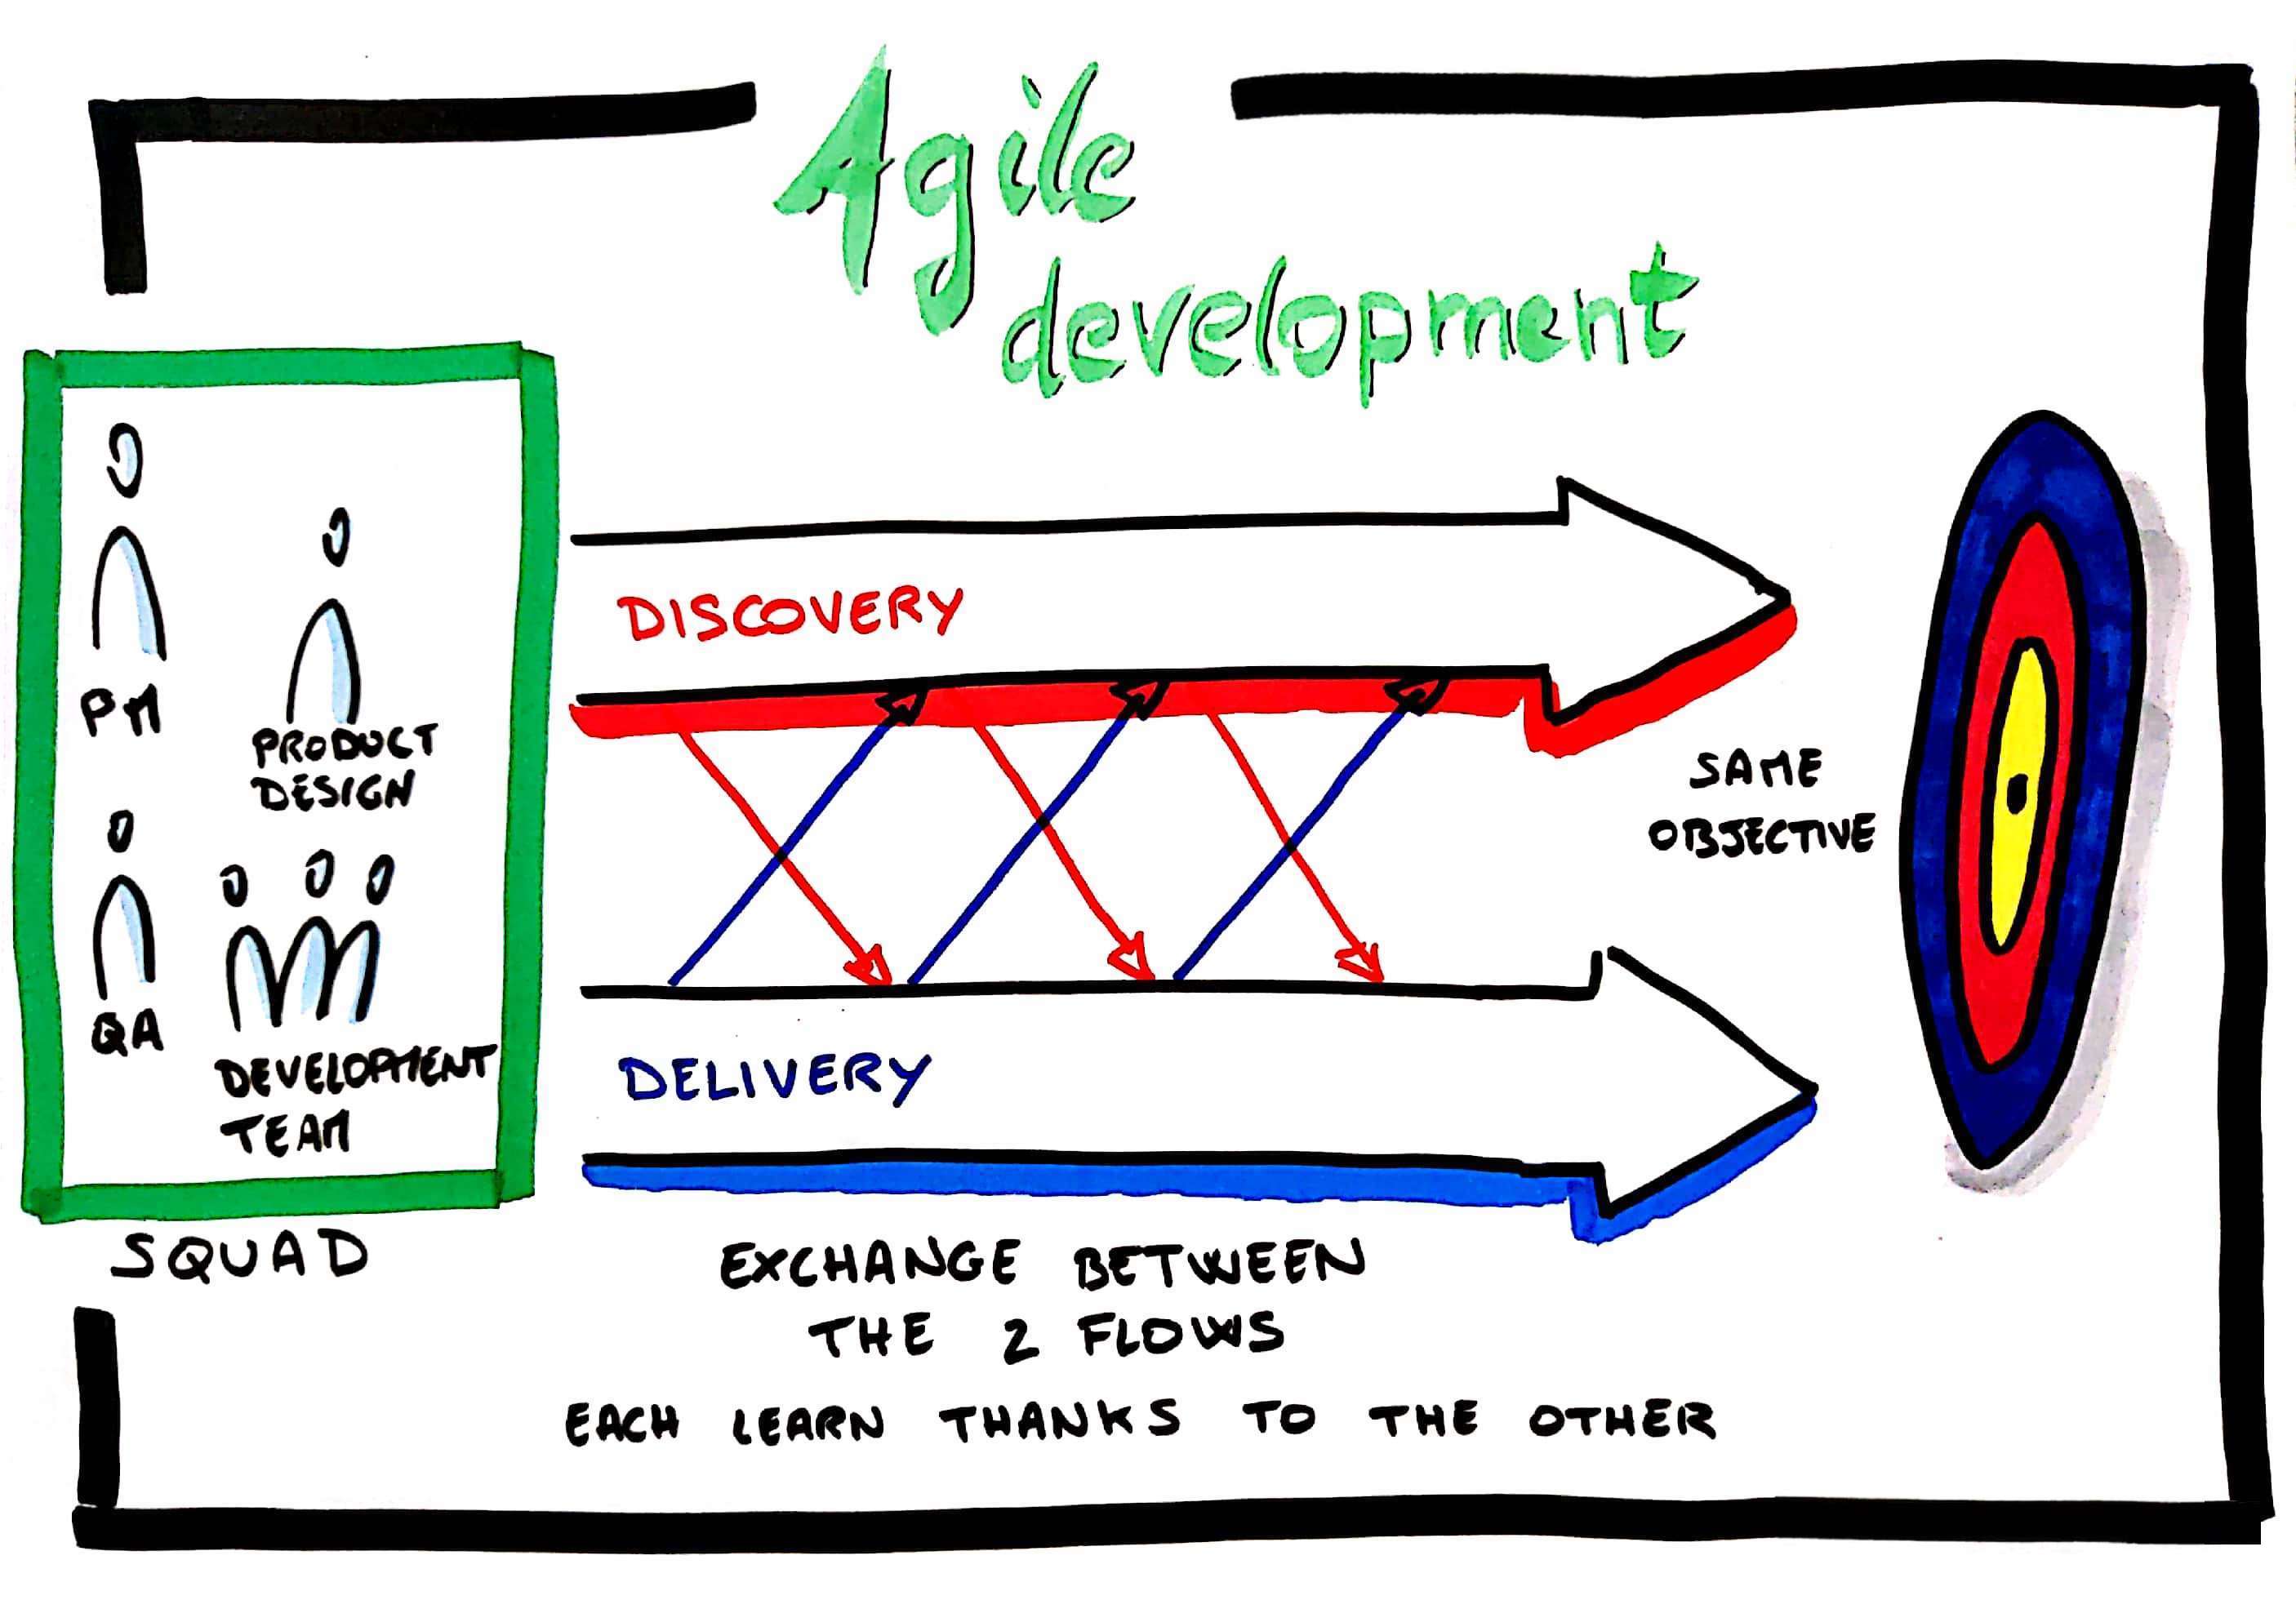 Agile
development
PM
PRODUCT
DESIGN
QA
DEVELOPMENT
TEAM
SQUAD
DISCOVERY
DELIVERY
SAME
OBJECTIVE
EXCHANGE BETWEEN
THE 2 FLOWS
EACH LEARN THANKS TO THE OTHER